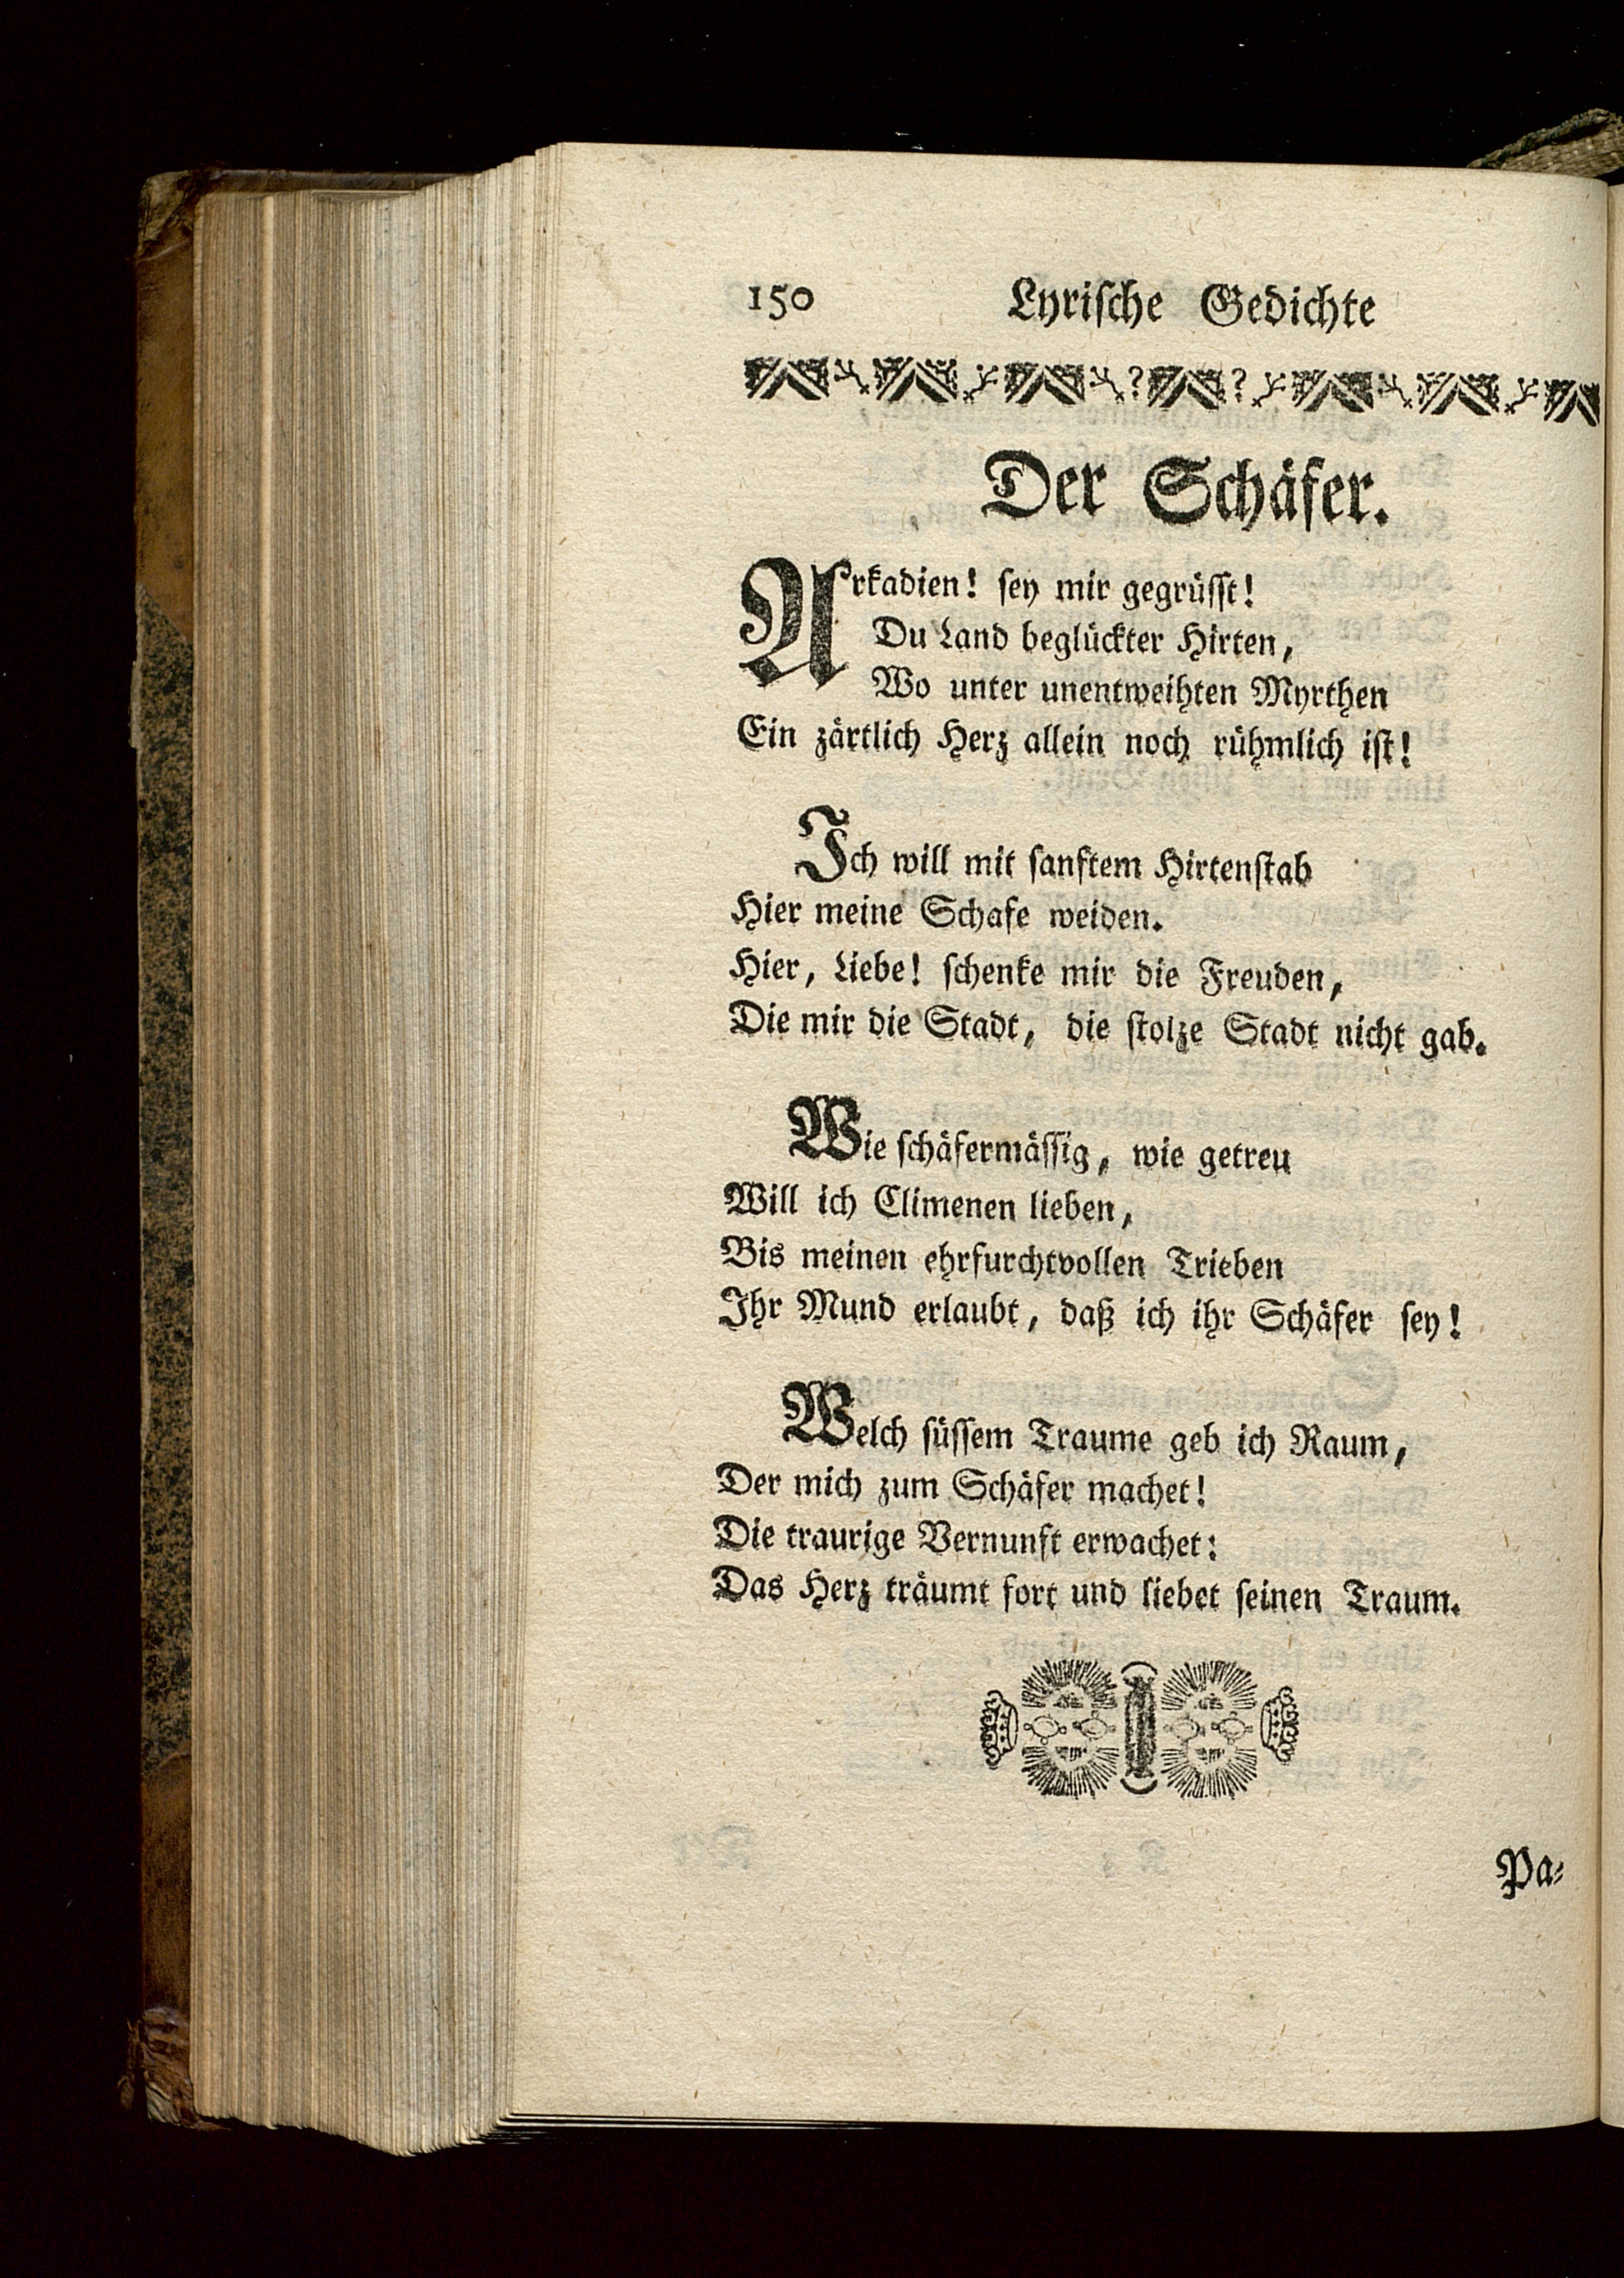 150 Lyriſche Gedichte
Der Schäfer.
Arkadien! ſey mir gegrüſſt!
Du Land beglückter Hirten,
Wo unter unentweihten Myrthen
Ein zärtlich Herz allein noch rühmlich iſt!
Ich will mit ſanftem Hirtenſtab
Hier meine Schafe weiden.
Hier, Liebe! ſchenke mir die Freuden,
Die mir die Stadt, die ſtolze Stadt nicht gab.
Wie ſchäfermäſſig, wie getreu
Will ich Climenen lieben,
Bis meinen ehrfurchtvollen Trieben
Ihr Mund erlaubt, daß ich ihr Schäfer ſey!
Welch ſüſſem Traume geb ich Raum,
Der mich zum Schäfer machet!
Die traurige Vernunft erwachet:
Das Herz träumt fort und liebet ſeinen Traum.
Pa-